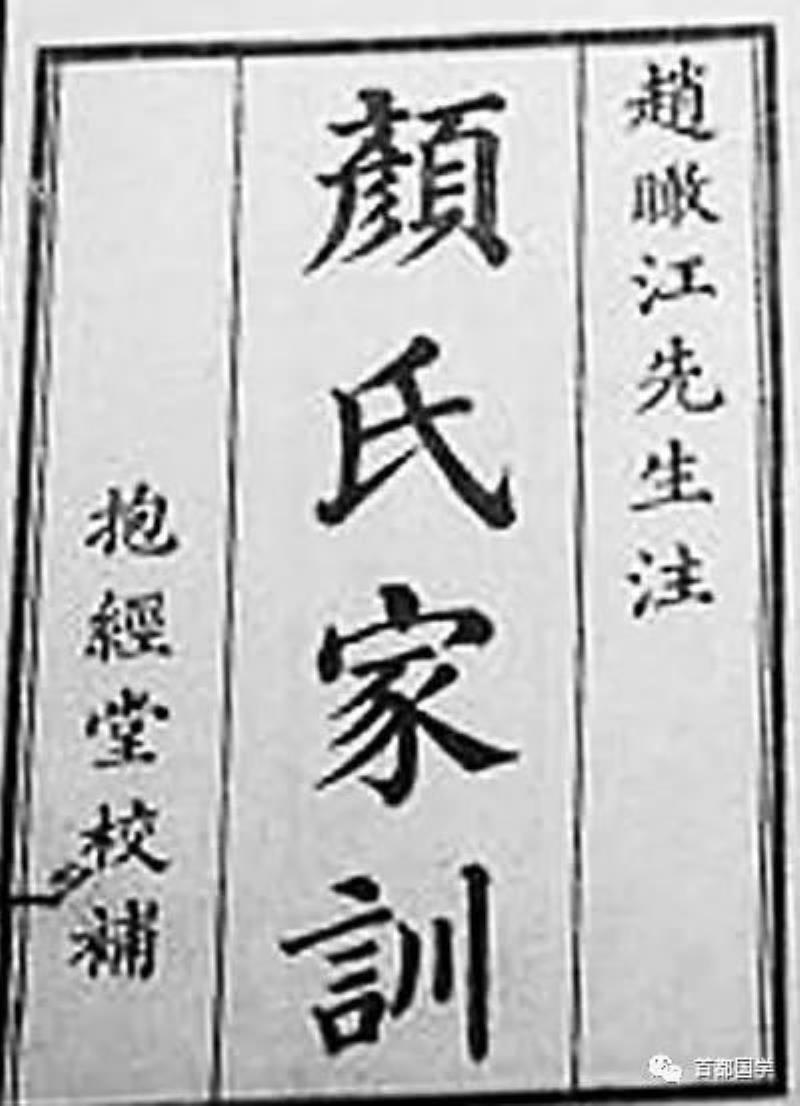 趙瞰江先生注
顏氏家訓
抱經堂校補
首都国学